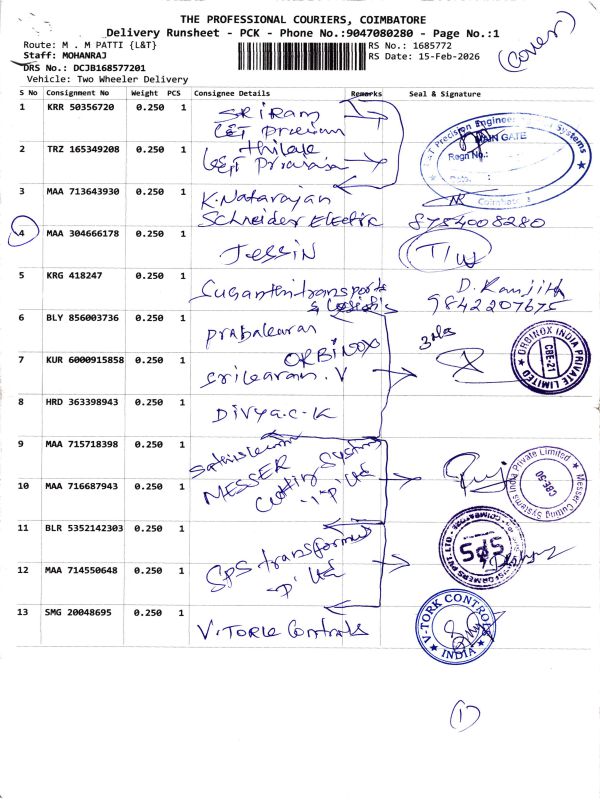 THE PROFESSIONAL COURIERS, COIMBATORE
Delivery Runsheet - PCK - Phone No.:9047080280 - Page No.:1
(cover)
Route: M . M PATTI {L&T}
RS No.: 1685772
Staff: MOHANRAJ
RS Date: 15-Feb-2026
DRS No.: DCJB168577201
Vehicle: Two Wheeler Delivery
S No Consignment No Weight PCS Consignee Details Remarks Seal & Signature
1 KRR 50356720 0.250 1 SRiRam
L&T
MAIN GATE
Regn No.:
2 TRZ 165349208 0.250 1
L&T
3 MAA 713643930 0.250 1 K.Natarajan
Schneider Electric 8754008280
4 MAA 304666178 0.250 1 JESSIN T/W
5 KRG 418247 0.250 1 Suganthi transports D. Ranjith
& 9842207675
6 BLY 856003736 0.250 1 prabakaran
ORBINOX
ORBINOX INDIA PRIVATE LIMITED
CBE-21
7 KUR 6000915858 1 0.250 1 Srikaran.V
8 HRD 363398943 0.250 1 Divya.C.K
9 MAA 715718398 0.250 1
MESSER Cutting Systems
Messer Cutting Systems India Private Limited
CBE-50
10 MAA 716687943 0.250 1
11 BLR 5352142303 0.250 1
SPS transformers
"P" Ltd
SPS
12 MAA 714550648 0.250 1
13 SMG 20048695 0.250 1 V-TORK Controls
V-TORK CONTROLS
INDIA
(1)